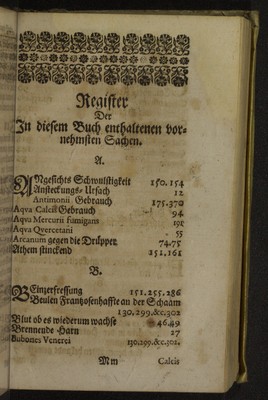 Register
Der
In diesem Buch enthaltenen vor-
nehmsten Sachen.
A.
ANgesichts Schwulstigkeit 150.154
Ansteckungs-Ursach 12
Antimonii Gebrauch 175.370
Aqva Calcis Gebrauch 94
Aqva Mercurii fumigans
Aqva Qvercetani 55
Arcanum gegen die Drüpper 74.75
Athem stinckend 151.161
B.
BEinzerfressung 151.255.286
Beulen Frantzosenhaffte an der Schaam
130.299.&c.302
Blut ob es wiederum wachse 46.49
Brennende Harn 27
Bubones Venerei 130.299.&c.301
Mm Calcis